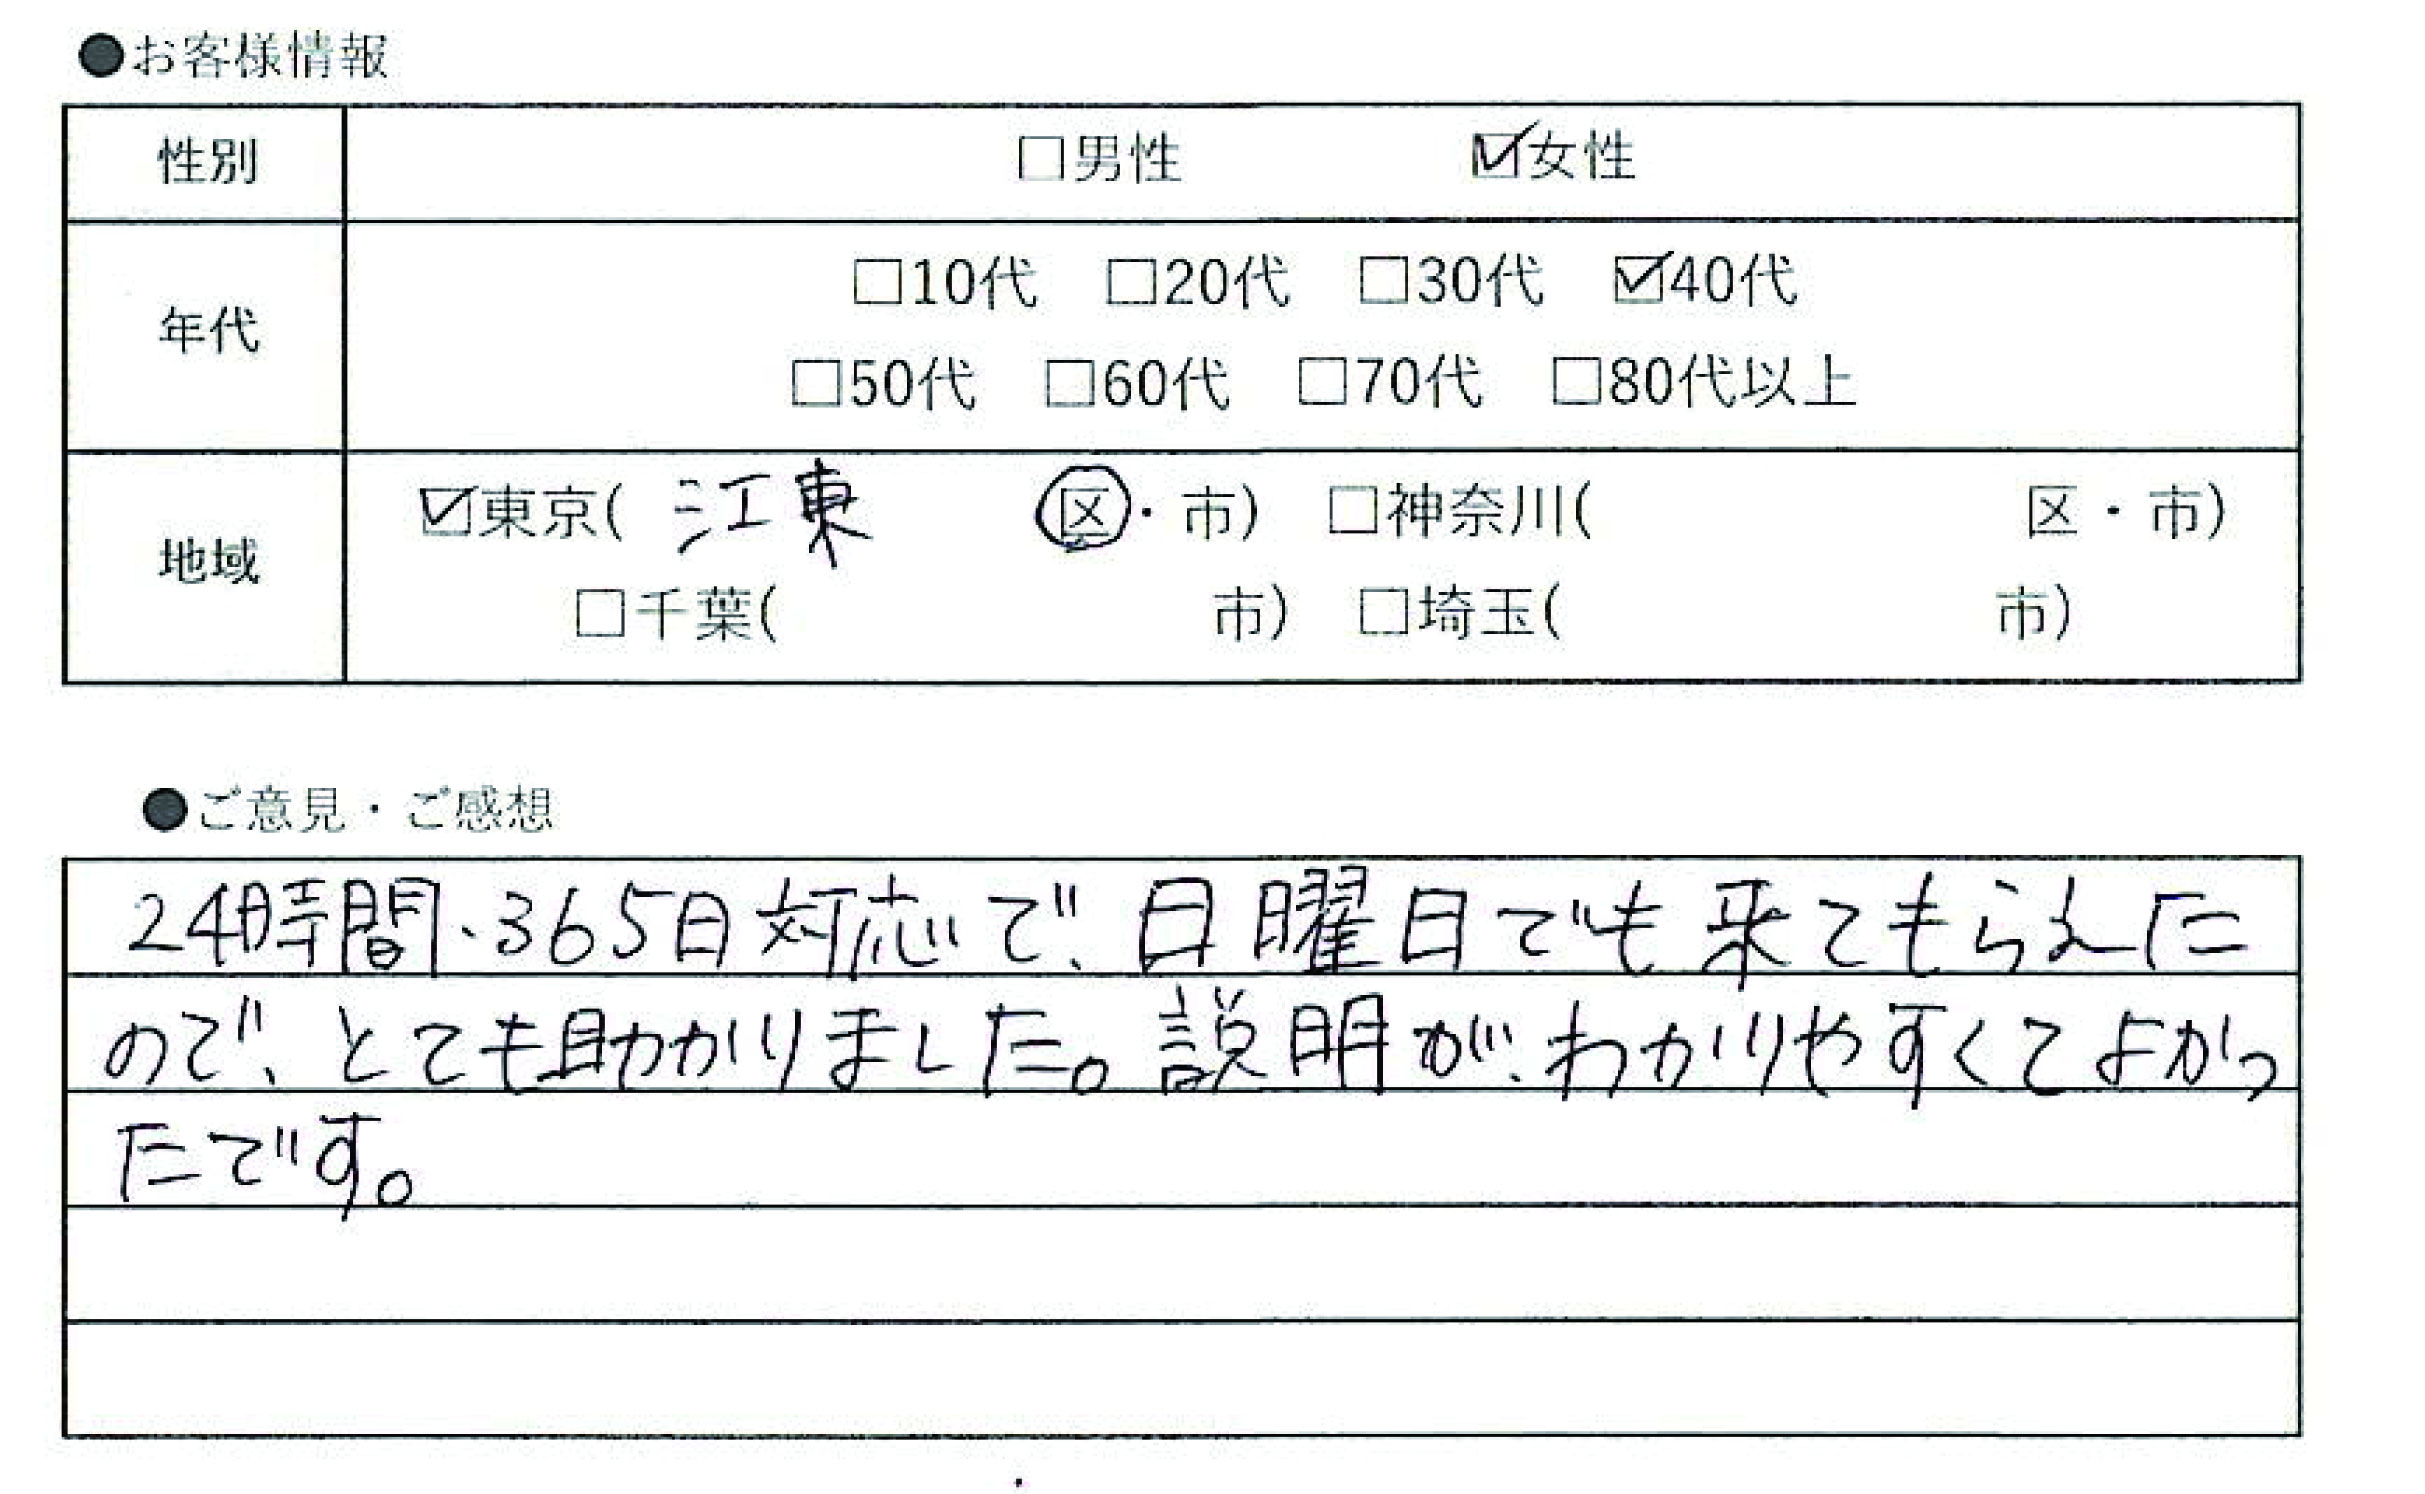 ●お客様情報
性別 □男性 ☑女性
年代 □10代 □20代 □30代 ☑40代
□50代 □60代 □70代 □80代以上
地域 ☑東京( 江東 区・市) □神奈川( 区・市)
□千葉( 市) □埼玉( 市)
●ご意見・ご感想
24時間、365日対応で、日曜日でも来てもらえた
ので、とても助かりました。説明が、わかりやすくてよかっ
たです。